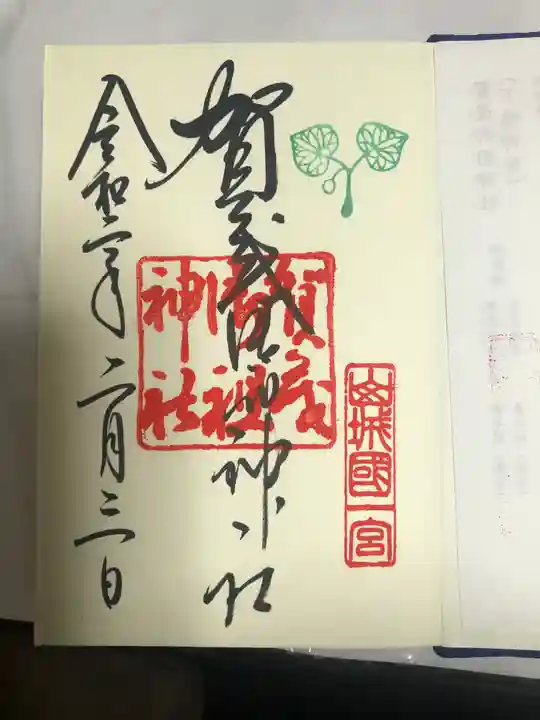 山城國一宮
賀茂御祖神社
賀茂
御祖
神社
令和二年二月三日